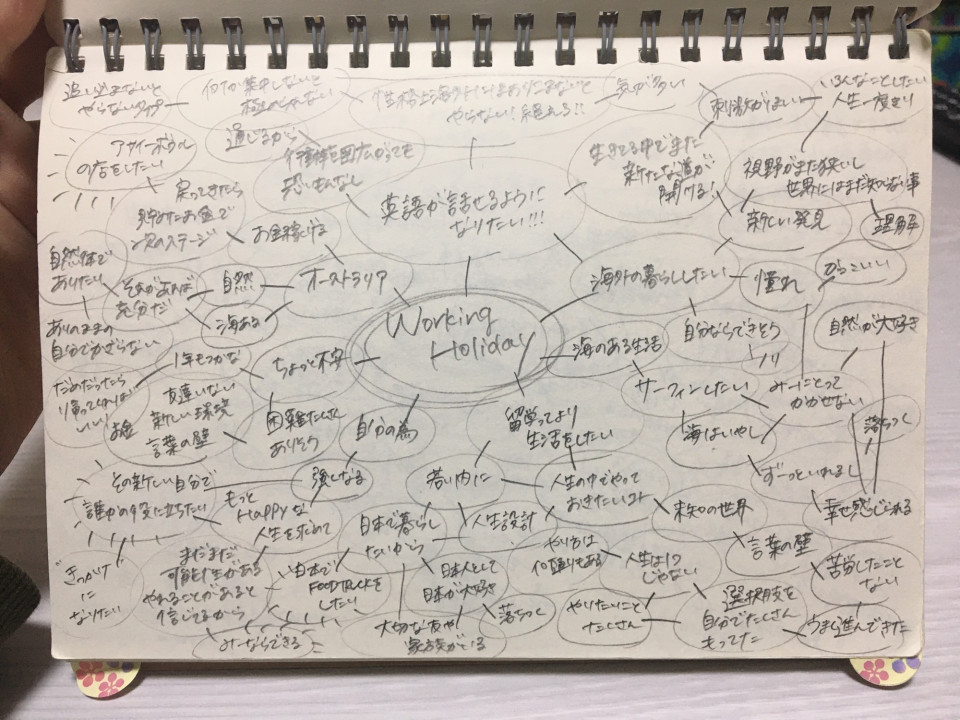 追い込まないと
やらないタイプ
何かに集中しないと
性格上海外に
やらない!
気が多い
刺激がほしい
いろんなことしたい
人生一度きり
アサイーボウル
の店をしたい
通じるから
行動範囲広がっても
恐いもんなし
英語が話せるように
なりたい!!!
生きてる中でまた
新たな道が
開ける
視野がまだ狭いし
世界にはまだ知らない事
新しい発見
理解
戻ってきたら
貯めたお金で
次のステージ
お金稼げる
自然体で
ありたい
それがあれば
充分だ
自然
海ある
オーストラリア
Working
Holiday
海外の暮らししたい
憧れ
かっこいい
ありのままの
自分でかざらない
1年もつかな
ちょっと不安
海のある生活
自分ならできそう
自然が大好き
だめだったら
帰ってくればいい
いい!
お金
友達いない
新しい環境
言葉の壁
困難たくさん
ありそう
自分の為
留学ってより
生活をしたい
サーフィンしたい
海はいやし
みーにとって
かかせない
落ちつく
ずーっといれるし
幸せ感じられる
その新しい自分で
誰かの役に立ちたい
強くなる
もっと
Happyな
人生を求めて
若い内に
人生の中でやって
おきたいコト
未知の世界
言葉の壁
苦労したこと
ない
きっかけ
に
なりたい
まだまだ
可能性がある
やれることがあると
信じてるから
みーならできる
日本で
FOODTRUCKを
したい
日本で暮らし
たいから
人生設計
日本人として
日本が大好き
大切な友や
家族がいる
落ちつく
やり方は
何通りもある
人生は1つ
じゃない
やりたいこと
たくさん
選択肢を
自分でたくさん
もってた
うまく進んできた